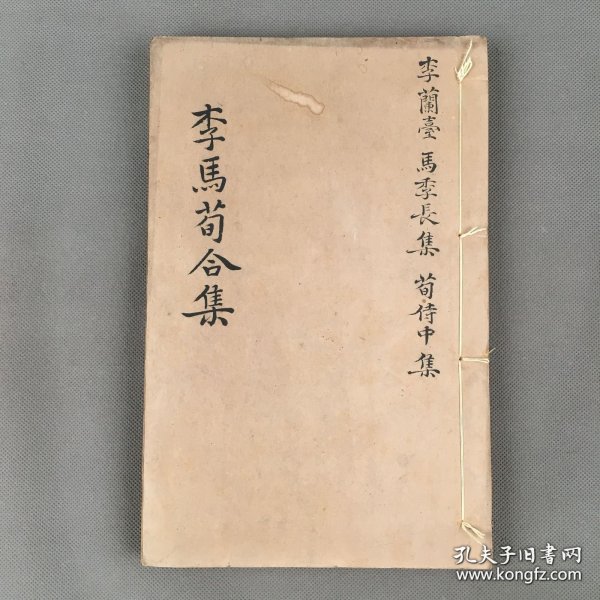 李蘭臺 馬季長集 荀侍中集
李馬荀合集
孔夫子旧書网
www.kongfz.com